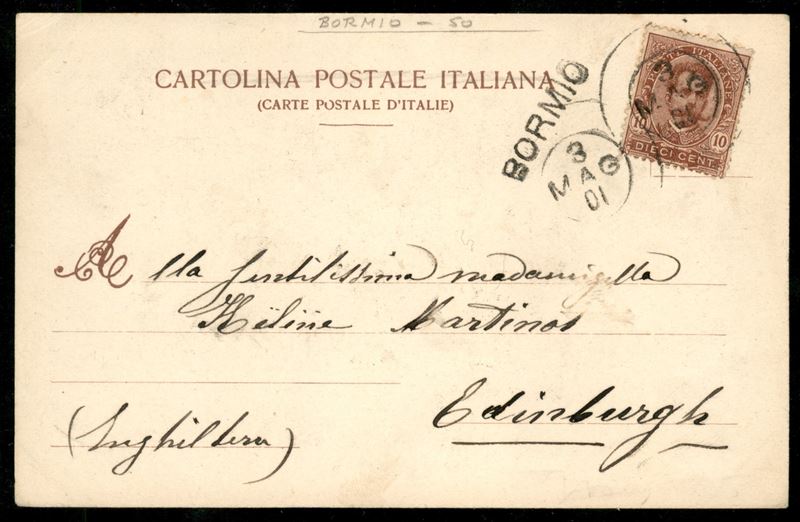 BORMIO - 50
CARTOLINA POSTALE ITALIANA
(CARTE POSTALE D'ITALIE)
BORMIO
3
MAG
01
3 G
M
10 10
DIECI CENT.
Alla gentilissima madamigella
Martinos
Edinburgh
(Inghilterra)